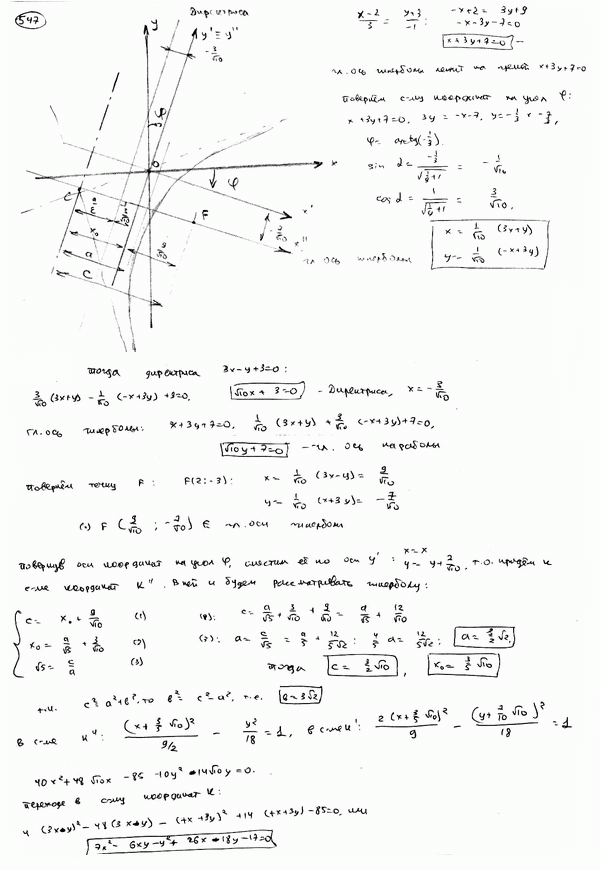 547
Директриса
y
y' ≡ y''
-3/√10
φ
O
x
C
φ
F
x'
x''
x₀
a
C
(x-2)/3 = (y+3)/-1 : -x+2 = 3y+9
-x-3y-7=0
x+3y+7=0 —
гл. ось гиперболы лежит на прямой x+3y+7=0
Повернём с-му координат на угол φ:
x+3y+7=0, 3y=-x-7, y=-1/3 x -7/3,
φ= arctg(-1/3).
sin α = (-1/3)/√(1/9+1) = -1/√10
cos α = 1/√(1/9+1) = 3/√10,
x = 1/√10 (3x+y)
y= 1/√10 (-x+3y)
гл. ось гиперболы
Тогда директриса 3x-y+3=0:
3/√10 (3x+y) - 1/√10 (-x+3y) +3=0, √10x + 3=0 - Директриса, x=-3/√10
гл. ось гиперболы: x+3y+7=0, 1/√10 (3x+y) + 3/√10 (-x+3y)+7=0,
√10y+7=0 — гл. ось параболы
Повернём точку F: F(2;-3): x= 1/√10 (3x-y) = 9/√10
y= 1/√10 (x+3y)= -7/√10
(·) F (9/√10 ; -7/√10) ∈ гл. оси гиперболы
Повернув оси координат на угол φ, сместим её по оси y' : x=x y=y+7/√10, т.о. придём к
с-ме координат K''. В ней и будем рассматривать гиперболу:
c= x₀ + 9/√10 (1) (1): c= a/√5 + 3/√10 + 9/√10 = a/√5 + 12/√10
x₀ = a/√5 + 3/√10 (2) (3): a= c/√5 = a/5 + 12/5√2 ; 4/5 a= 12/5√2 ; a= 3/2 √2
√5 = c/a (3) тогда c= 3/2 √10 , x₀= 3/5 √10
т.к. c²=a²+b², то b²= c²-a², т.е. b=3√2
в с-ме K'': (x+3/5 √10)²/(9/2) - y²/18 =1, в с-ме K': 2(x+3/5 √10)²/9 - (y+7/10 √10)²/18 =1
40x²+48√10x -85 -10y²-14√10y=0.
переходя в с-му координат K:
4 (3x-y)² -48(3x-y) - (x+3y)² +14 (x+3y)-85=0, или
7x²- 6xy-y²+ 26x-18y-17=0